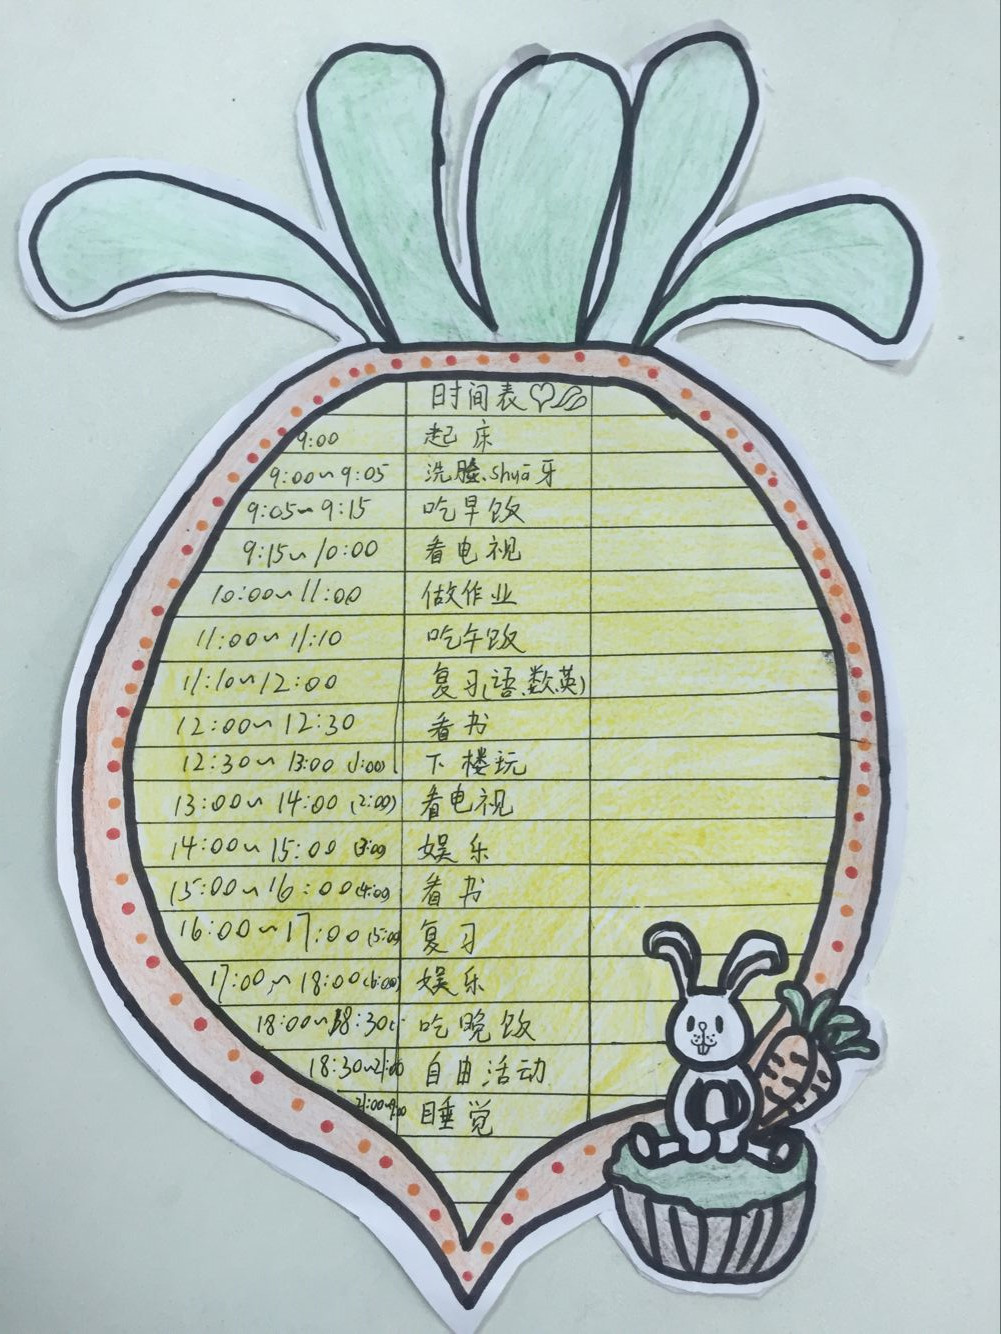 时间表
9:00 起床
9:00~9:05 洗脸、shuā牙
9:05~9:15 吃早饭
9:15~10:00 看电视
10:00~11:00 做作业
11:00~11:10 吃午饭
11:10~12:00 复习(语、数、英)
12:00~12:30 看书
12:30~13:00 (1:00) 下楼玩
13:00~14:00 (2:00) 看电视
14:00~15:00 (3:00) 娱乐
15:00~16:00 (4:00) 看书
16:00~17:00 (5:00) 复习
17:00~18:00 (6:00) 娱乐
18:00~18:30 吃晚饭
18:30~21:00 自由活动
21:00~9:00 睡觉